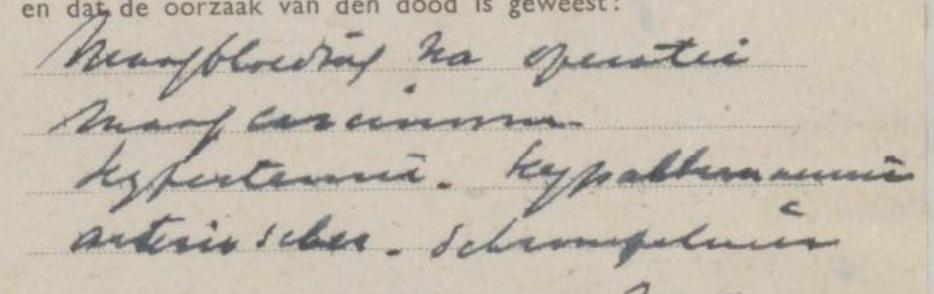 en dat de oorzaak van den dood is geweest:
Maagbloeding na operatie
Maagcarcinoom
Hypertensie. Hypalbuminaemie
arterioscler. Schrompelnier